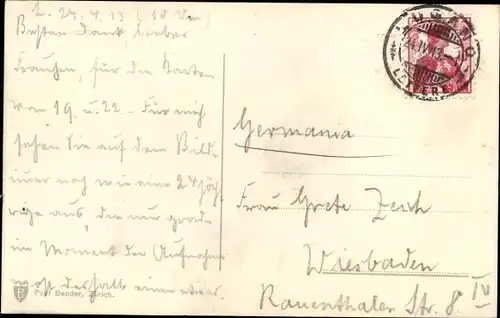 L. 24.4.13 (10 Vm)
Besten Dank lieber
Frauchen, für die Karten
vom 19. u. 22. - Für mich
sehen Sie auf dem Bilde
immer noch wie eine 24 jäh-
rige aus, die nur grade
im Moment der Aufnahme
wohl deshalb einen etwas
Paul Bender, Zürich.
LUGANO
24.IV.13
LETTERE
Germania
Frau Grete Zerch
Wiesbaden
Rauenthaler Str. 8 IV